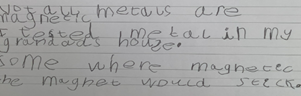 Not all metals are
magnetic
I tested metal in my
grandads house.
some where magnetic
he magnet would stick.